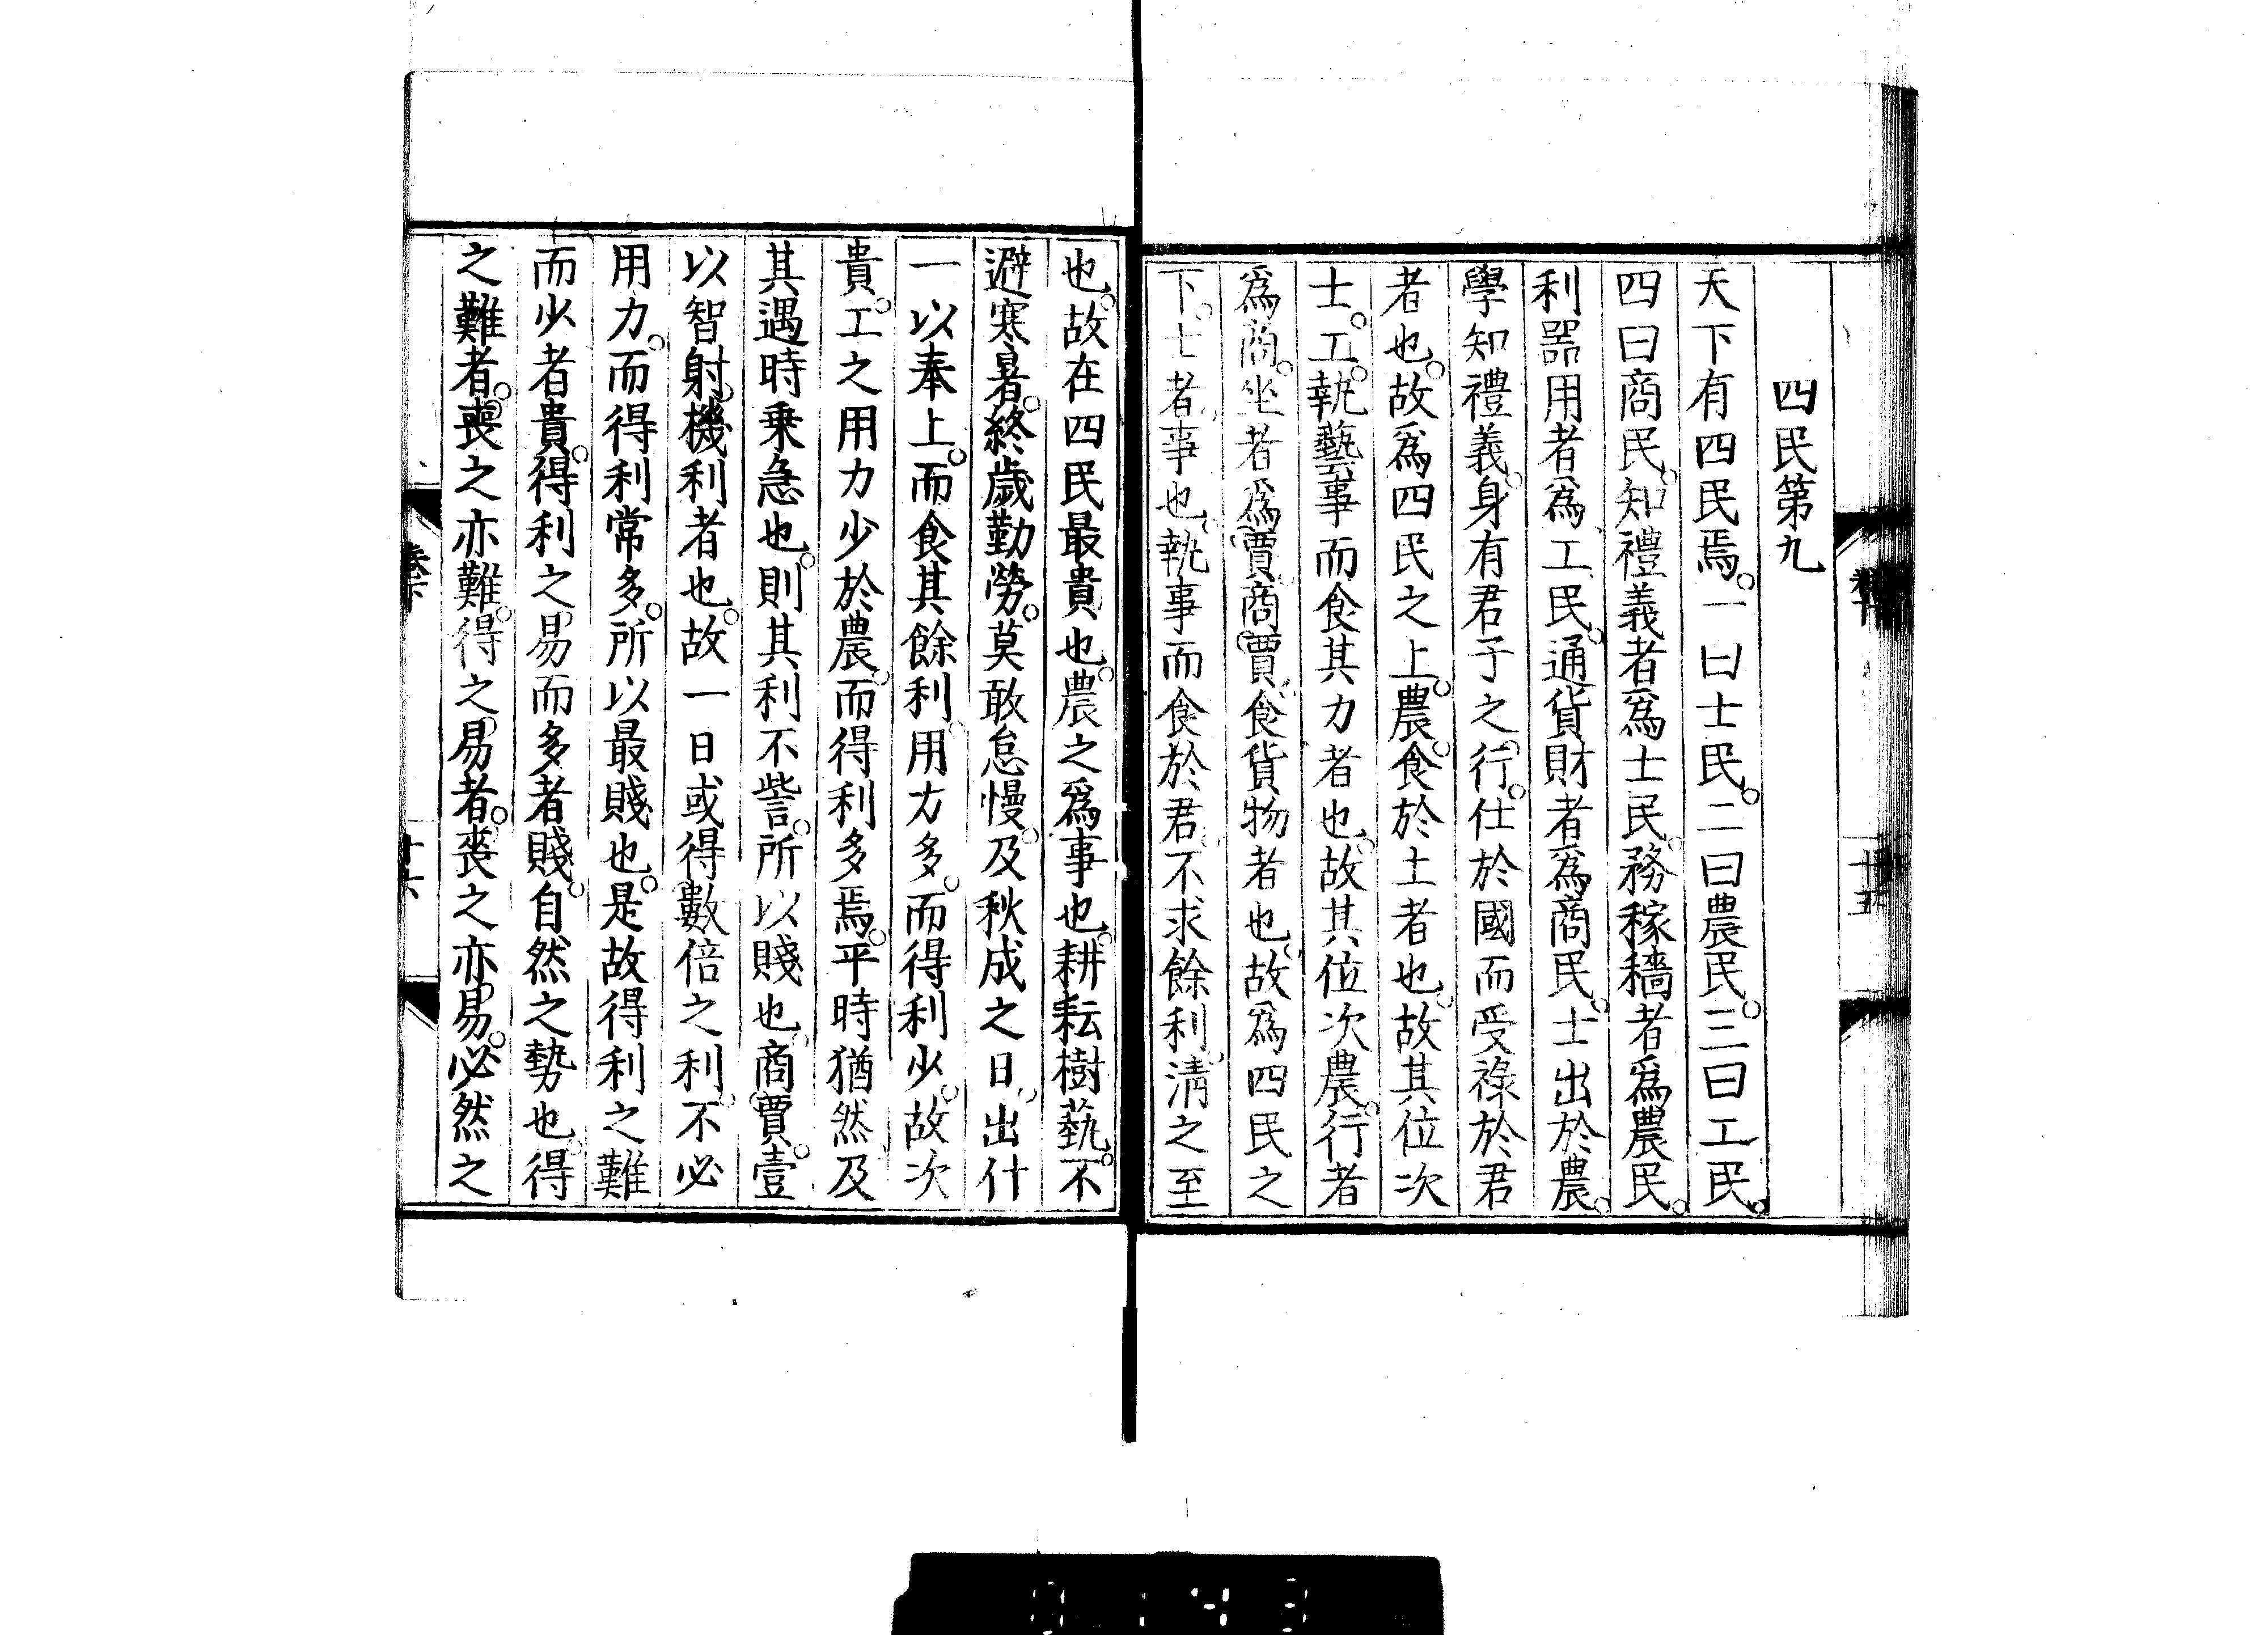 四民第九
天下有四民焉。一曰士民。二曰農民。三曰工民。
四曰商民。知禮義者爲士民。務稼穡者爲農民。
利器用者爲工民。通貨財者爲商民。士出於農。
學知禮義。身有君子之行。仕於國而受祿於君
者也。故爲四民之上。農。食於土者也。故其位次
士。工。執藝事而食其力者也。故其位次農。行者
爲商。坐者爲賈。商賈。食貨物者也。故爲四民之
下。士者。事也。執事而食於君。不求餘利。清之至
廿五
也。故在四民最貴也。農之爲事也。耕耘樹藝。不
避寒暑。終歲勤勞。莫敢怠慢。及秋成之日。出什
一以奉上。而食其餘利。用力多。而得利少。故次
貴。工之用力少於農。而得利多焉。平時猶然。及
其遇時乗急也。則其利不訾。所以賤也。商賈。壹
以智射機利者也。故一日或得數倍之利。不必
用力。而得利常多。所以最賤也。是故得利之難
而少者貴。得利之易而多者賤。自然之勢也。得
之難者。喪之亦難。得之易者。喪之亦易。必然之